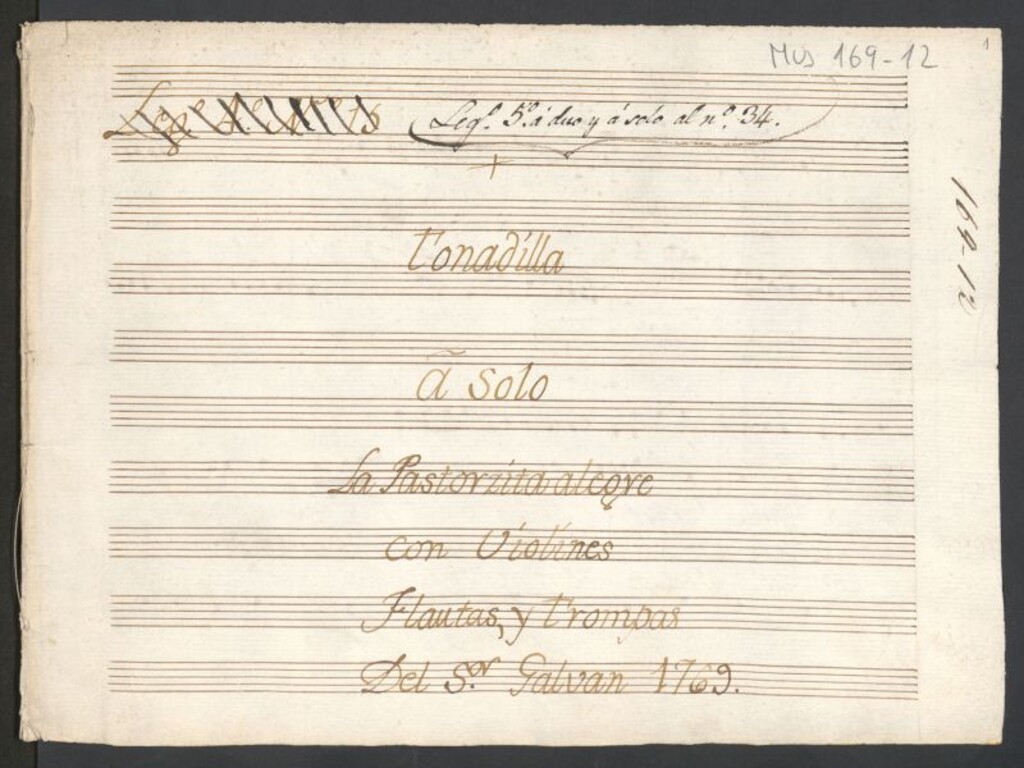 Mus 169-12
1
Legº. 5º. á duo y á solo al nº. 34.
169-12
Tonadilla
â Solo
La Pastorzita alegre
con Violines
Flautas, y trompas
Del S.or Galvan 1769.